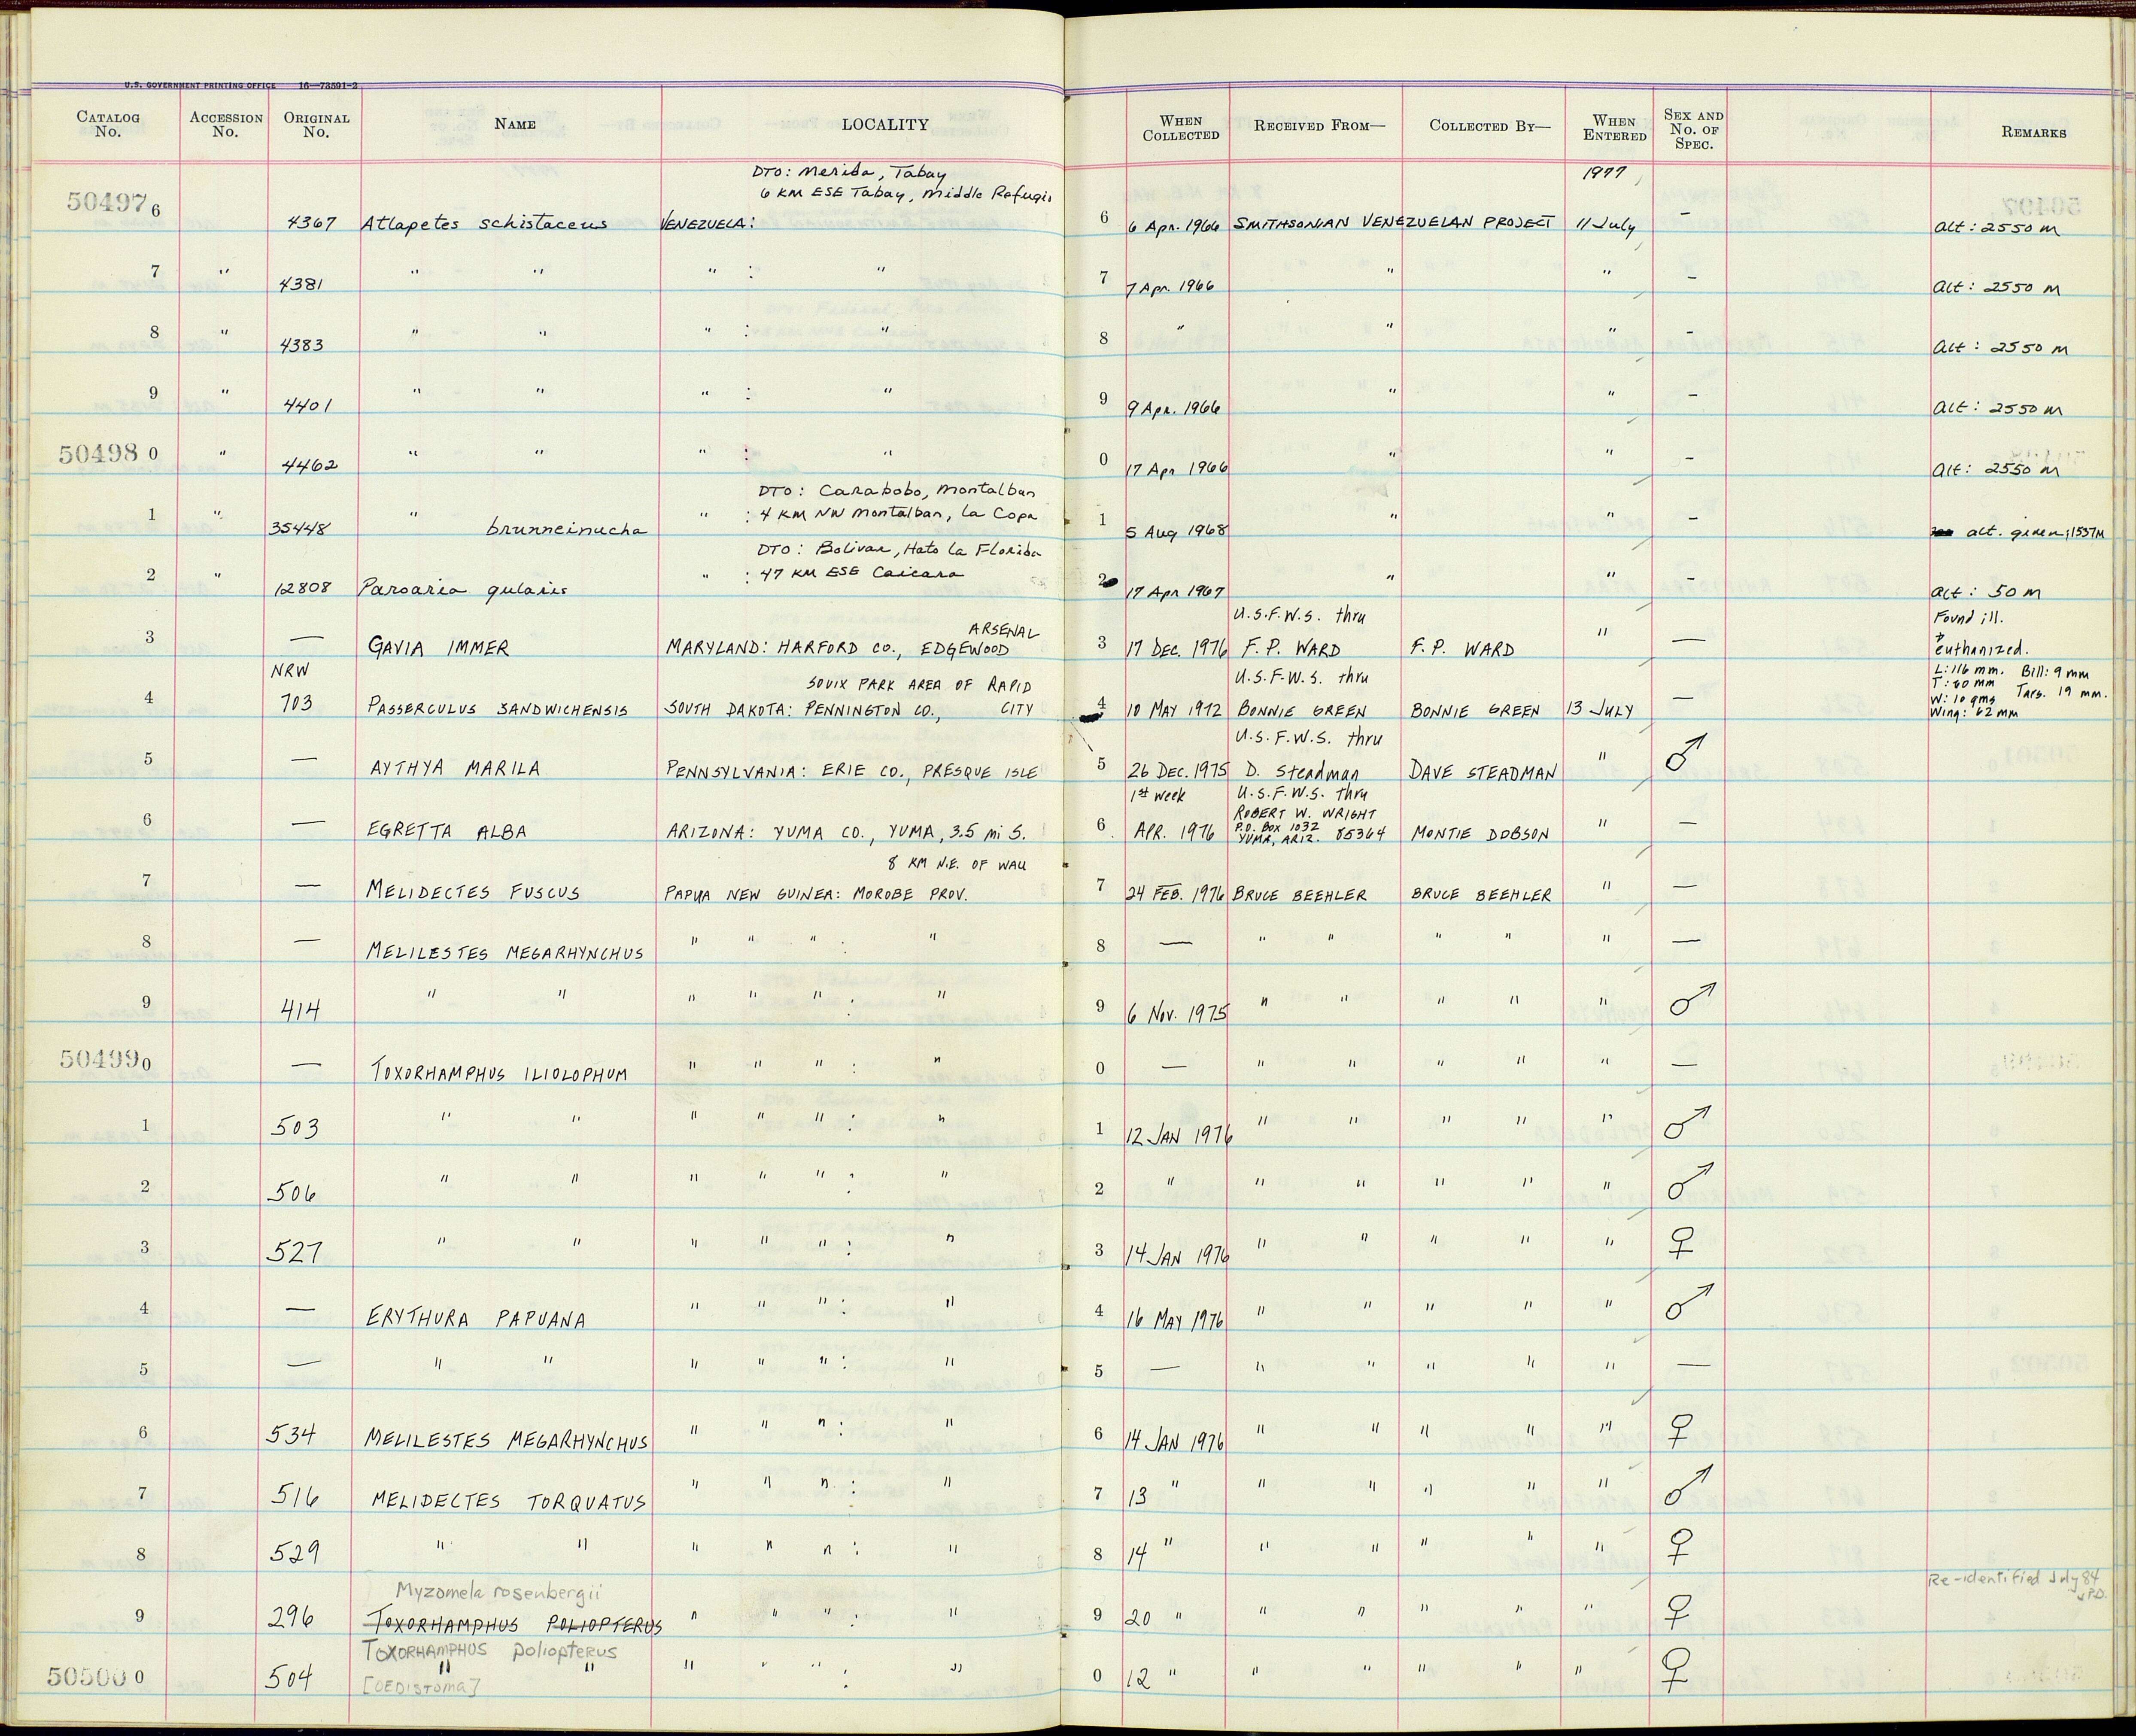 U.S. GOVERNMENT PRINTING OFFICE 16—73591-2
CATALOG No. ACCESSION No. ORIGINAL No. NAME LOCALITY WHEN COLLECTED RECEIVED FROM— COLLECTED BY— WHEN ENTERED SEX AND No. OF SPEC. REMARKS
DTO: Merida, Tabay 1977
6 KM ESE Tabay, Middle Refugio
504976 4367 Atlapetes schistaceus VENEZUELA: 6 6 Apr. 1966 SMITHSONIAN VENEZUELAN PROJECT 11 July - alt: 2550 m
7 " 4381 " " " : " 7 7 Apr. 1966 " " - alt: 2550 m
8 " 4383 " " " : " 8 " " " - alt: 2550 m
9 " 4401 " " " : " 9 9 Apr. 1966 " " - alt: 2550 m
504980 " 4462 " " " : " 0 17 Apr 1966 " " - alt: 2550 m
DTO: Carabobo, Montalban
1 " 35448 " brunneinucha " : 4 KM NW Montalban, La Copa 1 5 Aug 1968 " " - alt. given: 1537M
DTO: Bolivar, Hato la Florida
2 " 12808 Paroaria gularis " : 47 KM ESE Caicara 2 17 Apr 1967 " " - alt: 50 m
ARSENAL U.S.F.W.S. thru Found ill.
3 — GAVIA IMMER MARYLAND: HARFORD CO., EDGEWOOD 3 17 DEC. 1976 F. P. WARD F. P. WARD " — euthanized.
NRW SOUIX PARK AREA OF RAPID U.S.F.W.S. thru L: 116 mm. Bill: 9 mm
T: 60 mm Tars. 19 mm.
W: 10 gms
4 703 PASSERCULUS SANDWICHENSIS SOUTH DAKOTA: PENNINGTON CO., CITY 4 10 MAY 1972 BONNIE GREEN BONNIE GREEN 13 JULY — Wing: 62 mm
U.S.F.W.S. thru
5 — AYTHYA MARILA PENNSYLVANIA: ERIE CO., PRESQUE ISLE 5 26 DEC. 1975 D. Steadman DAVE STEADMAN " ♂
1st week U.S.F.W.S. thru
ROBERT W. WRIGHT
P.O. BOX 1032
6 — EGRETTA ALBA ARIZONA: YUMA CO., YUMA, 3.5 mi S. 6 APR. 1976 YUMA, ARIZ. 85364 MONTIE DOBSON " —
8 KM N.E. OF WAU
7 — MELIDECTES FUSCUS PAPUA NEW GUINEA: MOROBE PROV. 7 24 FEB. 1976 BRUCE BEEHLER BRUCE BEEHLER " —
8 — MELILESTES MEGARHYNCHUS " " " : " 8 — " " " " " —
9 414 " " " " " : " 9 6 Nov. 1975 " " " " " ♂
504990 — TOXORHAMPHUS ILIOLOPHUM " " " : " 0 — " " " " " —
1 503 " " " " " : " 1 12 JAN 1976 " " " " " ♂
2 506 " " " " " : " 2 " " " " " " ♂
3 527 " " " " " : " 3 14 JAN 1976 " " " " " ♀
4 — ERYTHURA PAPUANA " " " : " 4 16 MAY 1976 " " " " " ♂
5 — " " " " " : " 5 — " " " " " —
6 534 MELILESTES MEGARHYNCHUS " " " : " 6 14 JAN 1976 " " " " " ♀
7 516 MELIDECTES TORQUATUS " " " : " 7 13 " " " " " " ♂
8 529 " " " " " : " 8 14 " " " " " " ♀
Myzomela rosenbergii Re-identified July 84
9 296 TOXORHAMPHUS POLIOPTERUS " " " : " 9 20 " " " " " " ♀
TOXORHAMPHUS poliopterus
505000 504 " " " " " : " 0 12 " " " " " " ♀
[OEDISTOMA]